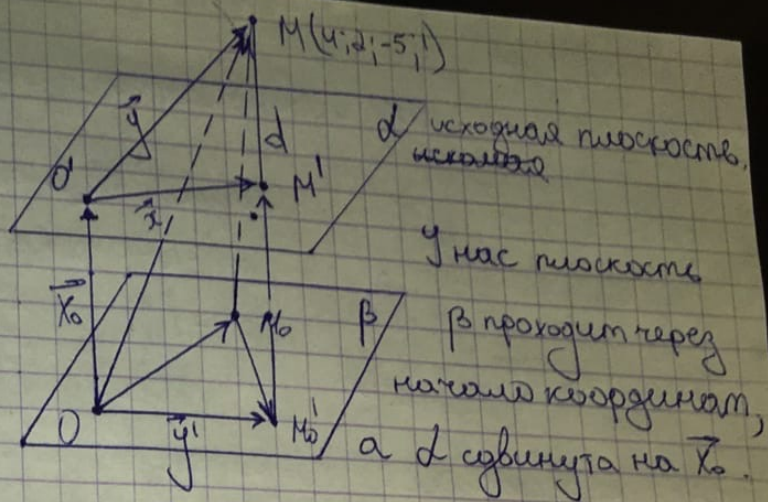 M(4;2;-5;1)
y
d
α исходная плоскость,
искомая
O'
x
M'
У нас плоскость
X₀
M₀
β
β проходит через
начало координат,
O
y'
M₀'
а α сдвинута на X₀.